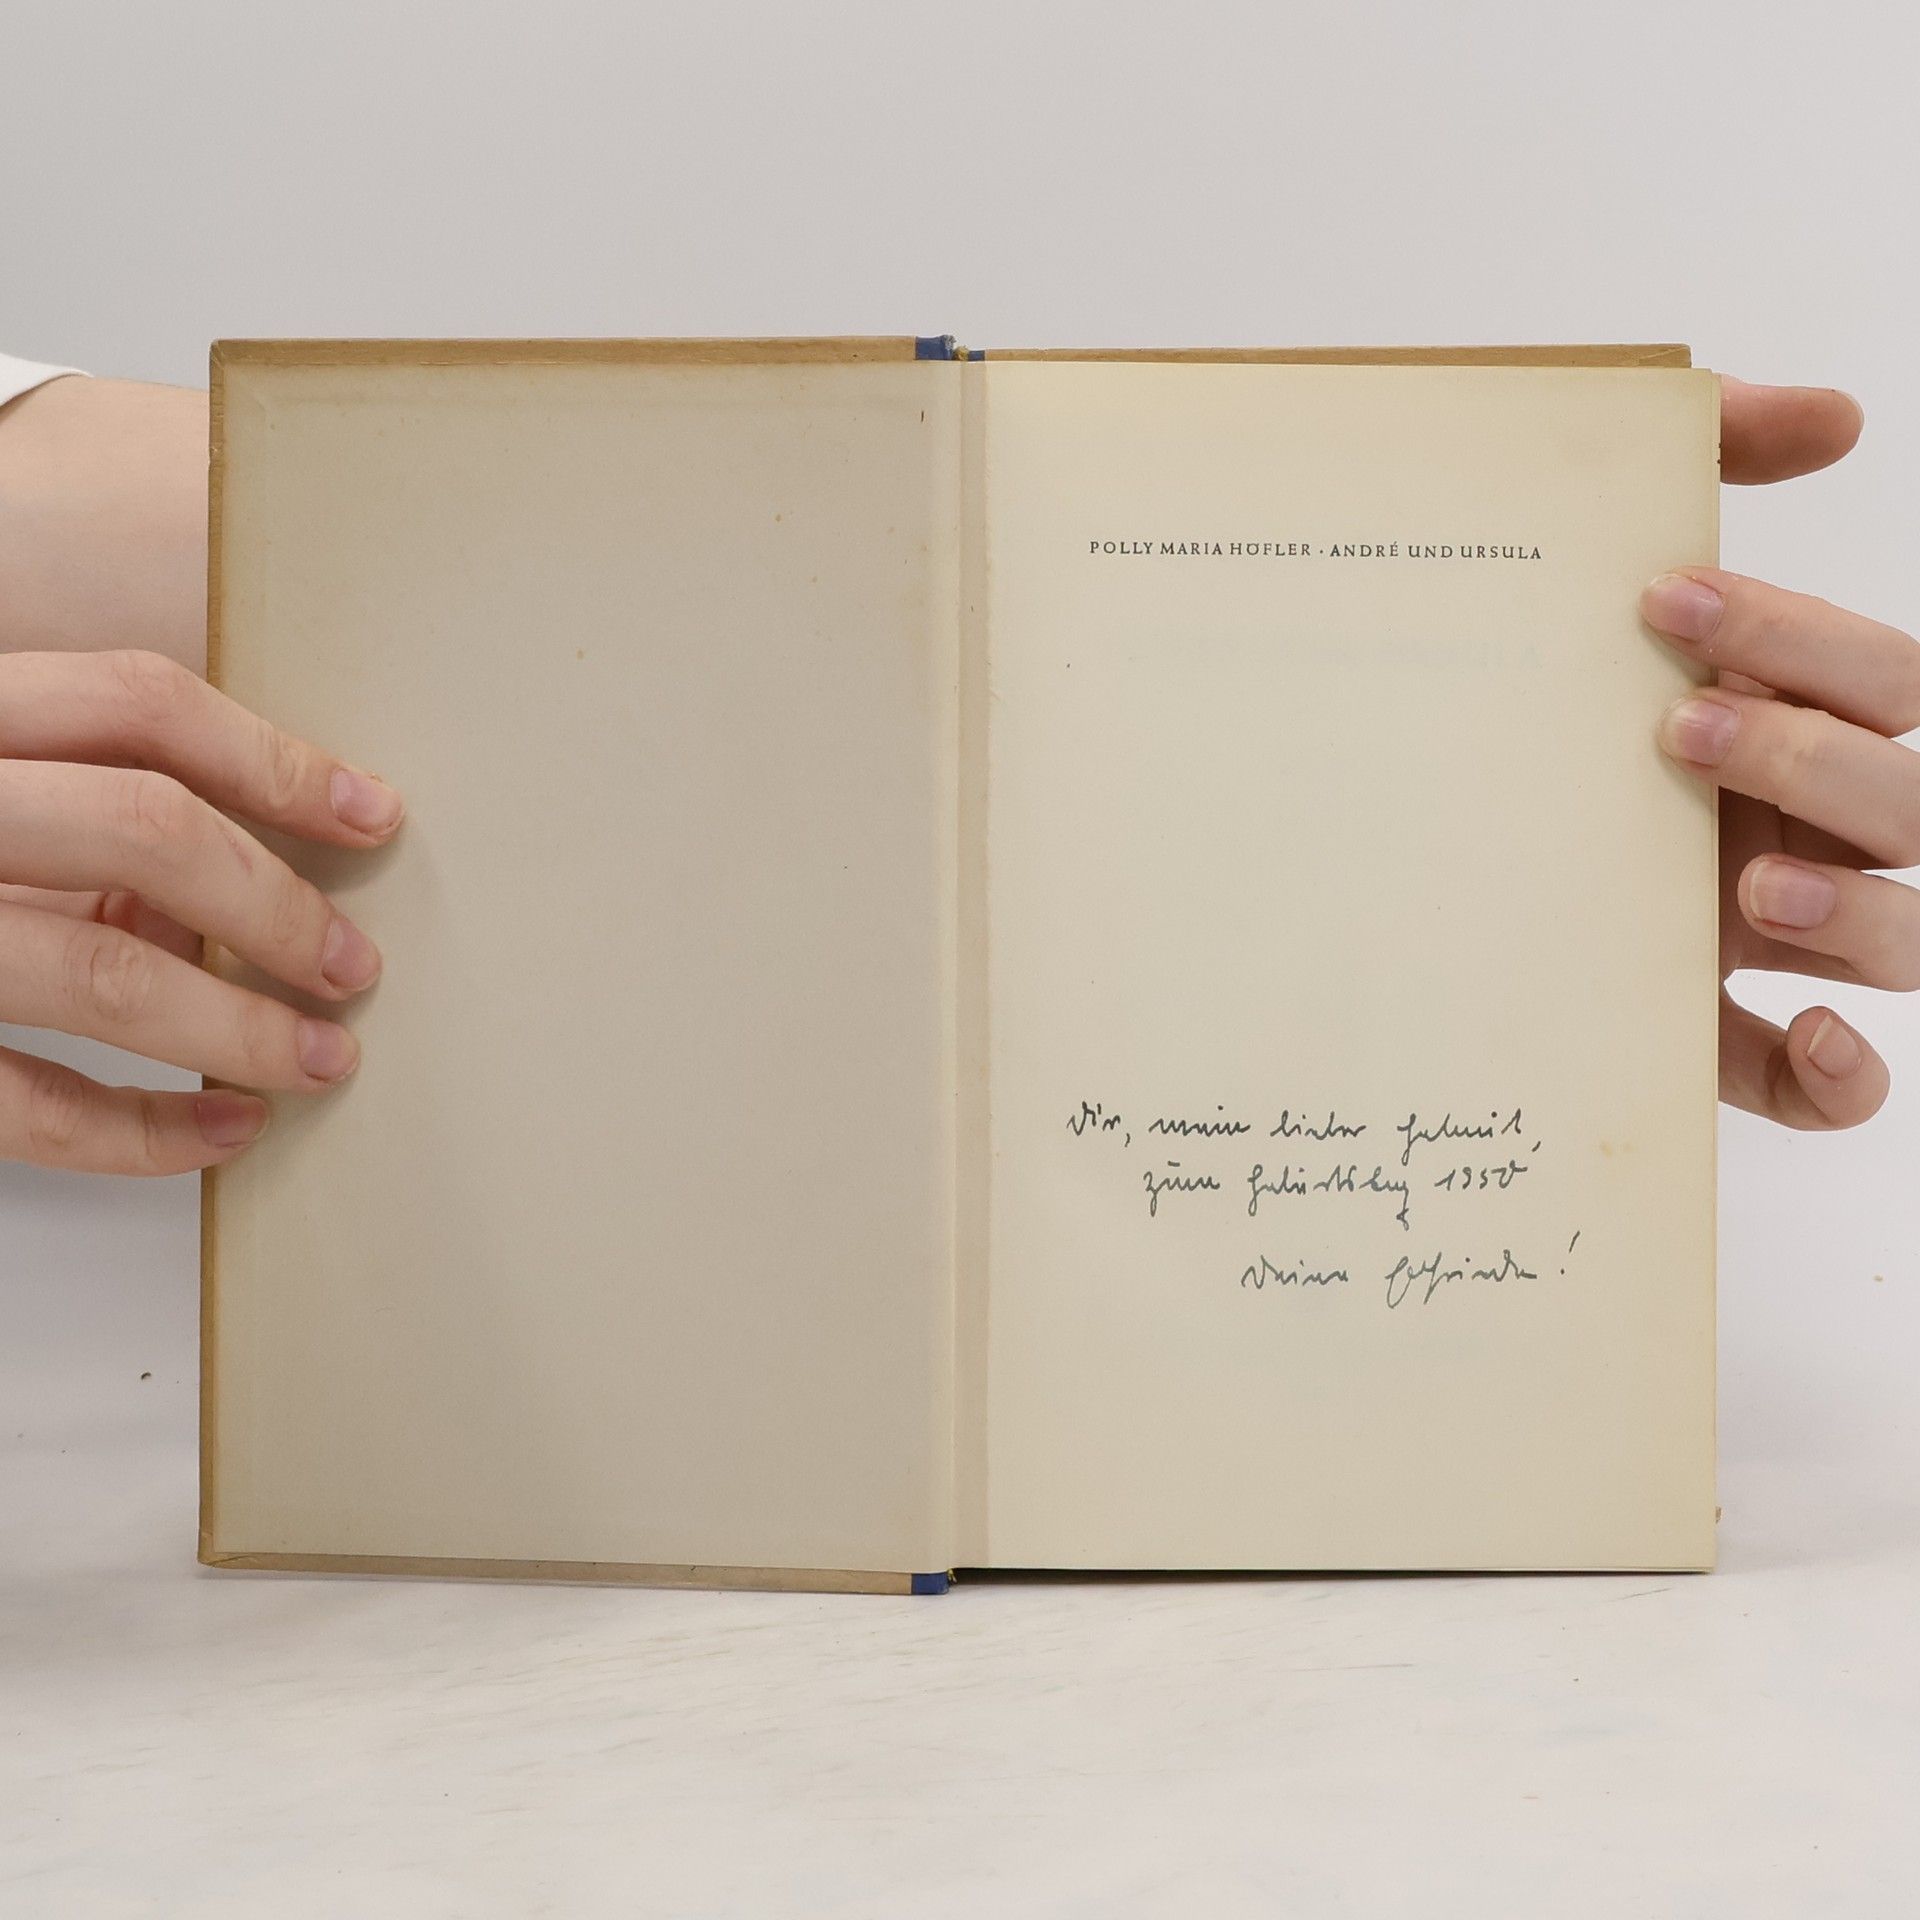 POLLY MARIA HÖFLER · ANDRÉ UND URSULA
Dir, mein lieber Helmut,
zum Geburtstag 1950
Deine